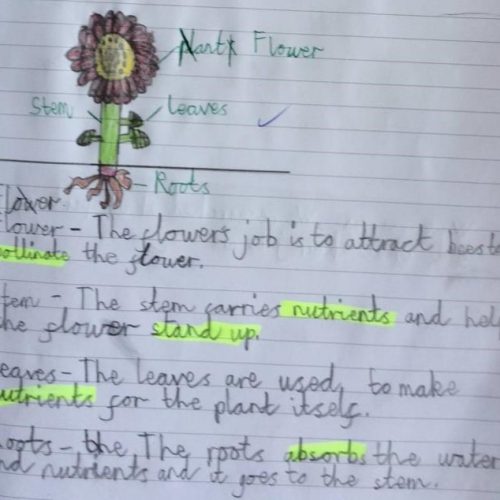 Plant Flower
Stem
Leaves
Roots
Flower
lower - The flowers job is to attract bees to
ollinate the flower.
tem - The stem carries nutrients and hel
he flower stand up.
eaves - The leaves are used to make
utrients for the plant itself.
oots - the The roots absorbs the water
nd nutrients and it goes to the stem.